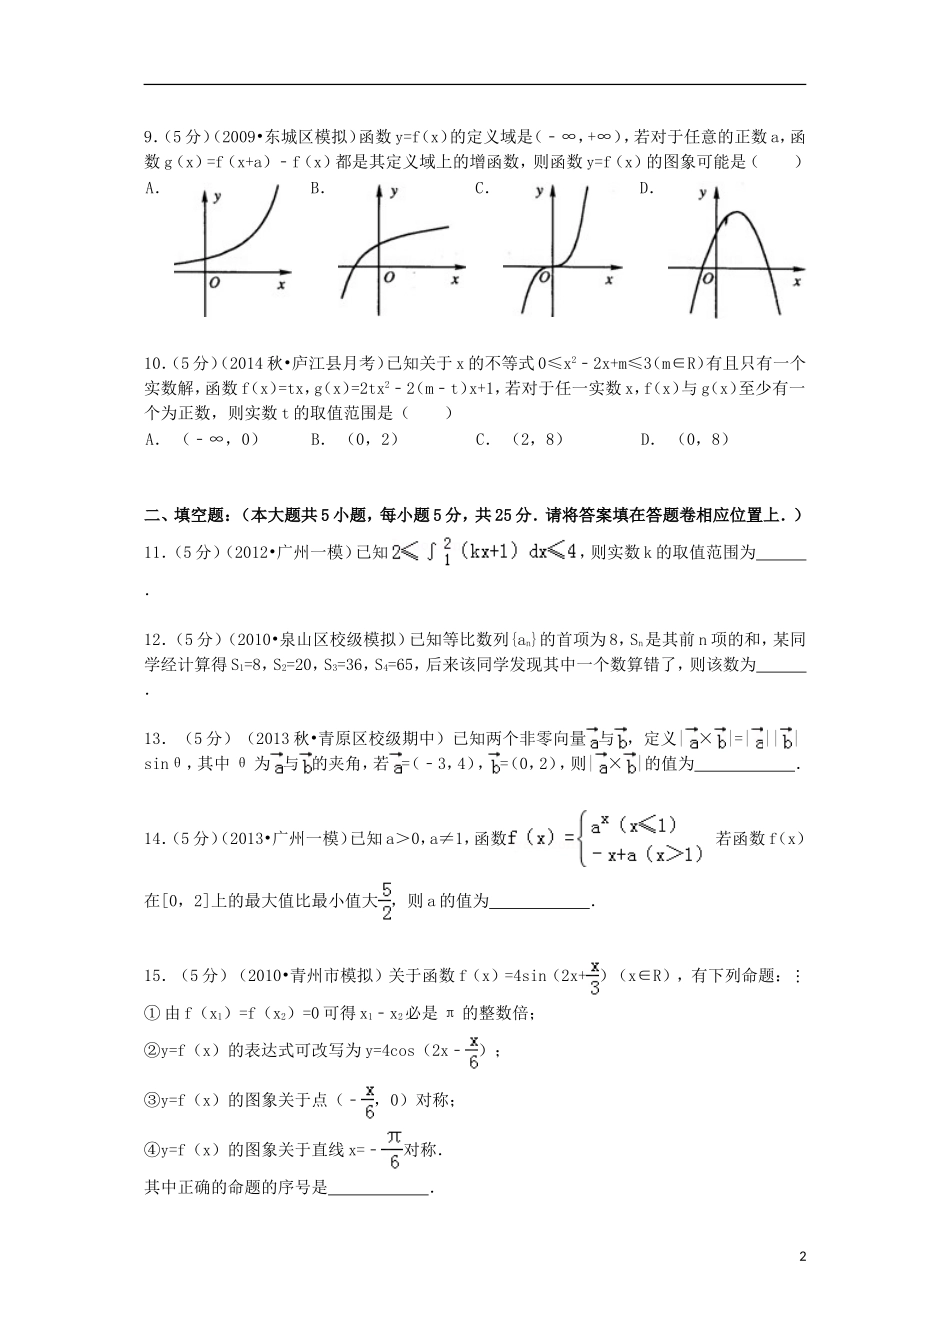 9.(5分)(2009•东城区模拟)函数y=f(x)的定义域是(﹣∞,+∞),若对于任意的正数a,函
数g(x)=f(x+a)﹣f(x)都是其定义域上的增函数,则函数y=f(x)的图象可能是(    )
A. B. C. D.
y y y y
O x O x O x O x
10.(5分)(2014秋•庐江县月考)已知关于x的不等式0≤x²﹣2x+m≤3(m∈R)有且只有一个
实数解,函数f(x)=tx,g(x)=2tx²﹣2(m﹣t)x+1,若对于任一实数x,f(x)与g(x)至少有一
个为正数,则实数t的取值范围是(    )
A. (﹣∞,0) B. (0,2) C. (2,8) D. (0,8)
二、填空题:(本大题共5小题,每小题5分,共25分.请将答案填在答题卷相应位置上.)
11.(5分)(2012•广州一模)已知2≤∫₁²(kx+1)dx≤4,则实数k的取值范围为______
.
12.(5分)(2010•泉山区校级模拟)已知等比数列{aₙ}的首项为8,Sₙ是其前n项的和,某同
学经计算得S₁=8,S₂=20,S₃=36,S₄=65,后来该同学发现其中一个数算错了,则该数为______
.
13.(5分)(2013秋•青原区校级期中)已知两个非零向量a⃗与b⃗,定义|a⃗×b⃗|=|a⃗||b⃗|
sinθ,其中θ为a⃗与b⃗的夹角,若a⃗=(﹣3,4),b⃗=(0,2),则|a⃗×b⃗|的值为____________.
14.(5分)(2013•广州一模)已知a>0,a≠1,函数f(x)={aˣ(x≤1) -x+a(x>1) 若函数f(x)
在[0,2]上的最大值比最小值大5/2,则a的值为____________.
15.(5分)(2010•青州市模拟)关于函数f(x)=4sin(2x+x/3)(x∈R),有下列命题:⋮
①由f(x₁)=f(x₂)=0可得x₁﹣x₂必是π的整数倍;
②y=f(x)的表达式可改写为y=4cos(2x﹣x/6);
③y=f(x)的图象关于点(﹣x/6,0)对称;
④y=f(x)的图象关于直线x=﹣π/6对称.
其中正确的命题的序号是____________.
2